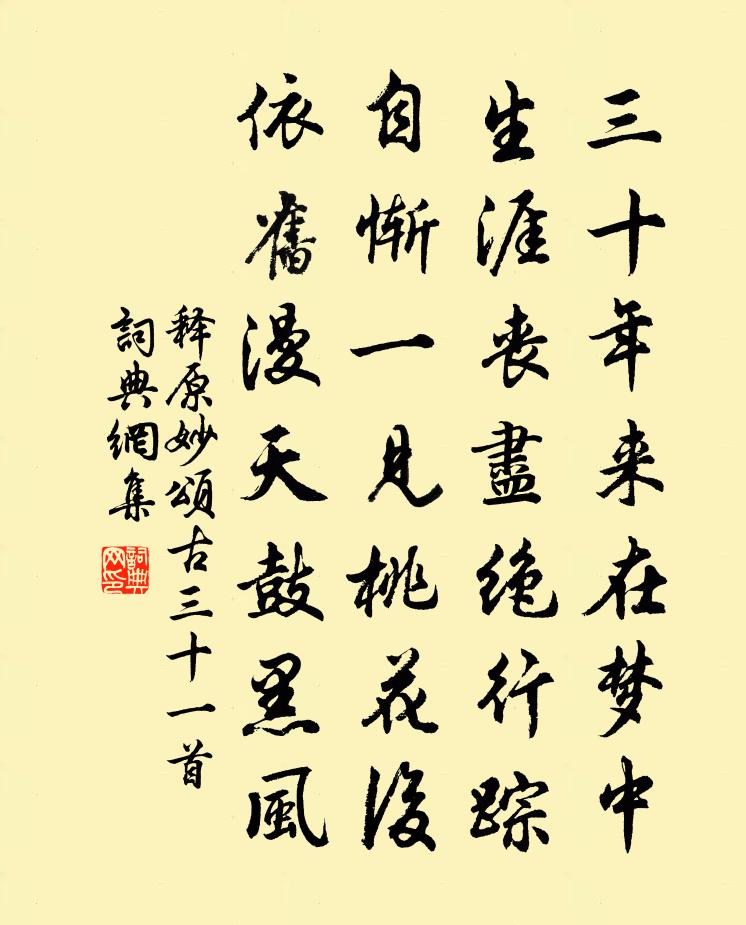 三十年来在梦中
生涯丧盡绝行踪
自惭一见桃花後
依舊漫天鼓黑風
释原妙頌古三十一首
詞典網集
詞典
网印